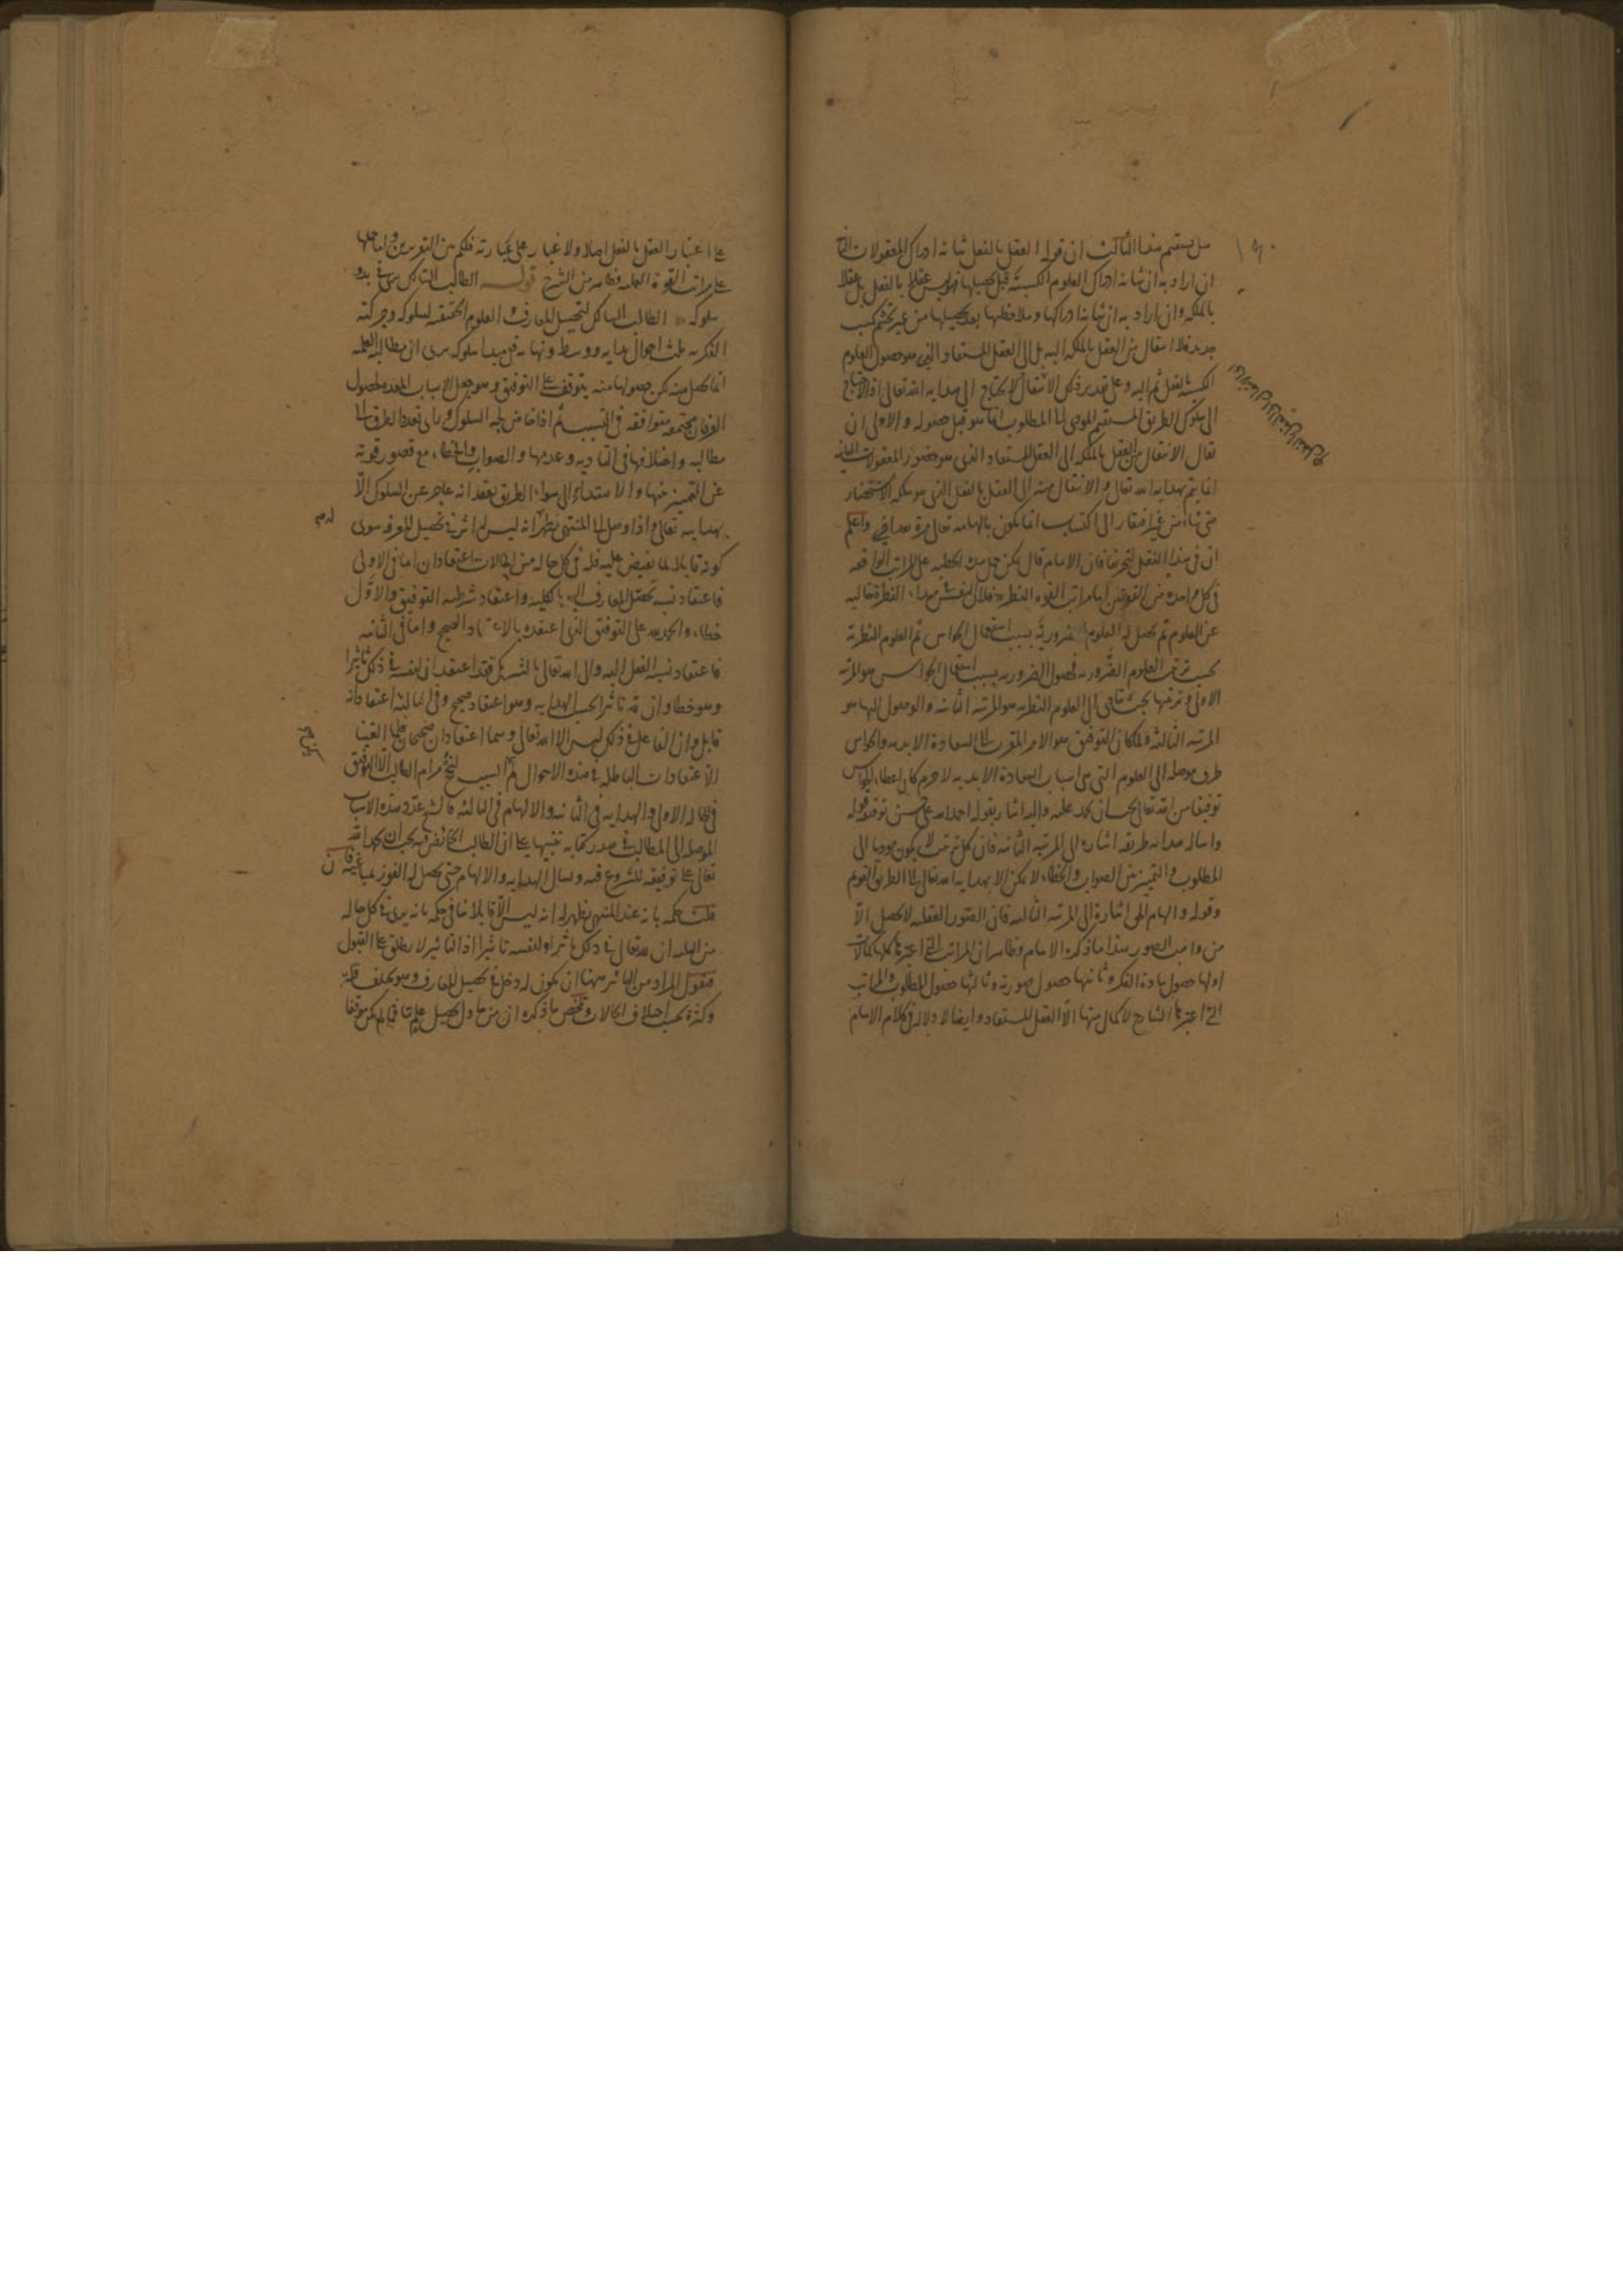 هل يستقيم هذا الثالث ان قوله العقل بالفعل شانه ادراك المعقولات الثا
ان اراد به ان شانه ادراك العلوم المكتسبة قبل تحصيلها فهو ليس عقلا بالفعل بل عقلا
بالملكة وان اراد به ان شانه ادراكها وملاحظتها بعد تحصيلها من غير تجشم كسب
جديد فلا انتقال من العقل بالملكة اليه بل الى العقل المستفاد الذي هو حصول العلوم
المكتسبة بالفعل ثم اليه وعلى تقدير ذلك الانتقال لا يحتاج الى هداية الله تعالى اذ الاحتياج
الى سلوك الطريق المستقيم المودى الى المطلوب انما هو قبل حصوله والاولى ان
يقال الانتقال من العقل بالملكة الى العقل المستفاد الذي هو حضور المعقولات الثانية
انما يتم بهداية الله تعالى والانتقال منه الى العقل بالفعل الذي هو ملكة الاستحضار
متى شاء من غير افتقار الى اكتساب انما يكون بالهامه تعالى مرة بعد اخرى واعلم
ان في هذا النقل لتحريفا فان الامام قال يمكن حمل هذه الخطبة على المراتب الواقعة
في كل واحدة من القوتين اما مراتب القوة النظرية فلان النفس في مبداء الفطرة خالية
عن العلوم ثم يحصل له العلوم الضرورية بسبب استعمال الحواس ثم العلوم النظرية
بحسب ترتيب العلوم الضرورية فحصول الضرورية بسبب استعمال الحواس هو المرتبة
الاولى وترتيبها بحيث يتادى الى العلوم النظرية هو المرتبة الثانية والوصول اليها هو
المرتبة الثالثة ولما كان التوفيق هو الامر المقرب الى السعادة الابدية والحواس
طرق موصلة الى العلوم التي هي اسباب السعادة الابدية لا جرم كان اعطاء الحواس
توفيقا من الله تعالى يجب ان يحمد عليه واليه اشار بقوله احمد الله على حسن توفيقه وقوله
واساله هداية طريقه اشارة الى المرتبة الثانية فان كل ترتيب لا يكون موديا الى
المطلوب والتمييز بين الصواب والخطاء لا يمكن الا بهداية الله تعالى الى الطريق القويم
وقوله والهام الحق اشارة الى المرتبة الثالثة فان الصور العقلية لا تحصل الا
من واهب الصور هذا ما ذكره الامام وظاهر ان المراتب التي اعتبرها كلها كمالات
اولها حصول مادة الفكر وثانيها حصول صورته وثالثها حصول المطلوب والمراتب
التي اعتبرها الشارح لا كمال منها الا العقل المستفاد وايضا لا دلالة في كلام الامام
على اعتبار العقل بالفعل اصلا ولا غبار على عبارته فلكم بين التقريرين واما حملها
على مراتب القوة العملية فظاهر من الشرح قوله الطالب السالك يرى في بدو
سلوكه الطالب السالك لتحصيل المعارف والعلوم الحقيقية لسلوكه وحركته
الفكرية ثلث احوال بداية ووسط ونهاية ففي مبدا سلوكه يرى ان مطالبه العلمية
انما يحصل منه لكن حصولها منه يتوقف على التوفيق وهو جعل الاسباب المعدة لحصول
العرفان مجتمعة متوافقة في التسبب ثم اذا خاض لجة السلوك وراى تعدد الطرق الى
مطالبه واختلافها في التادية وعدمها والصواب والخطاء مع قصور قوته
عن التمييز بينها والاهتداء الى سواء الطريق يعتقد انه عاجز عن السلوك الا
بهدايته تعالى واذا وصل الى المنتهى ظهر انه ليس له اثر في تحصيل المعرفة سوى
كونه قابلا لما يفيض عليه فله في كل حالة من الحالات اعتقادان اما في الاولى
فاعتقاد نسبة تحصيل المعارف اليه بالكلية واعتقاد شرطية التوفيق والاول
خطاء والحمد لله على التوفيق الذي اعتقده بالاعتقاد الصحيح واما في الثانية
فاعتقاد نسبة الفعل اليه والى الله تعالى بالتشريك فقد اعتقد ان لنفسه في ذلك تاثيرا
وهو خطا وان لله تاثيرا بحسب الهداية وهو اعتقاد صحيح وفي الثالثة اعتقاد انه
قابل وان الفاعل في ذلك ليس الا الله تعالى وهما اعتقادان صحيحان فلما الغينا
الاعتقادات الباطلة في هذه الاحوال ثم السبب لنجح مرام الطالب الا التوفيق
في الحالة الاولى والهداية في الثانية والالهام في الثالثة فالشيخ عدد هذه الاسباب
الموصلة الى المطالب في صدر كتابه تنبيها على ان الطالب الخائض فيه يجب ان يحمد الله
تعالى على توفيقه للشروع فيه ويسال الهداية والالهام حتى يحصل له الفوز بمباغيه فان
قلت حكمه بانه عند المنتهى يظهر له انه ليس الا قابلا ينافي حكمه بانه يرى في كل حالة
من الثلث ان لله تعالى في ذلك تاثيرا ولنفسه تاثيرا اذ التاثير لا يطلق على القبول
فنقول المراد من التاثير ههنا ان يكون له دخل في تحصيل المعارف وهو يختلف قلة
وكثرة بحسب اختلاف الحالات وتلخص ما ذكره ان من حاول تحصيل علم فما لم يكن موفقا